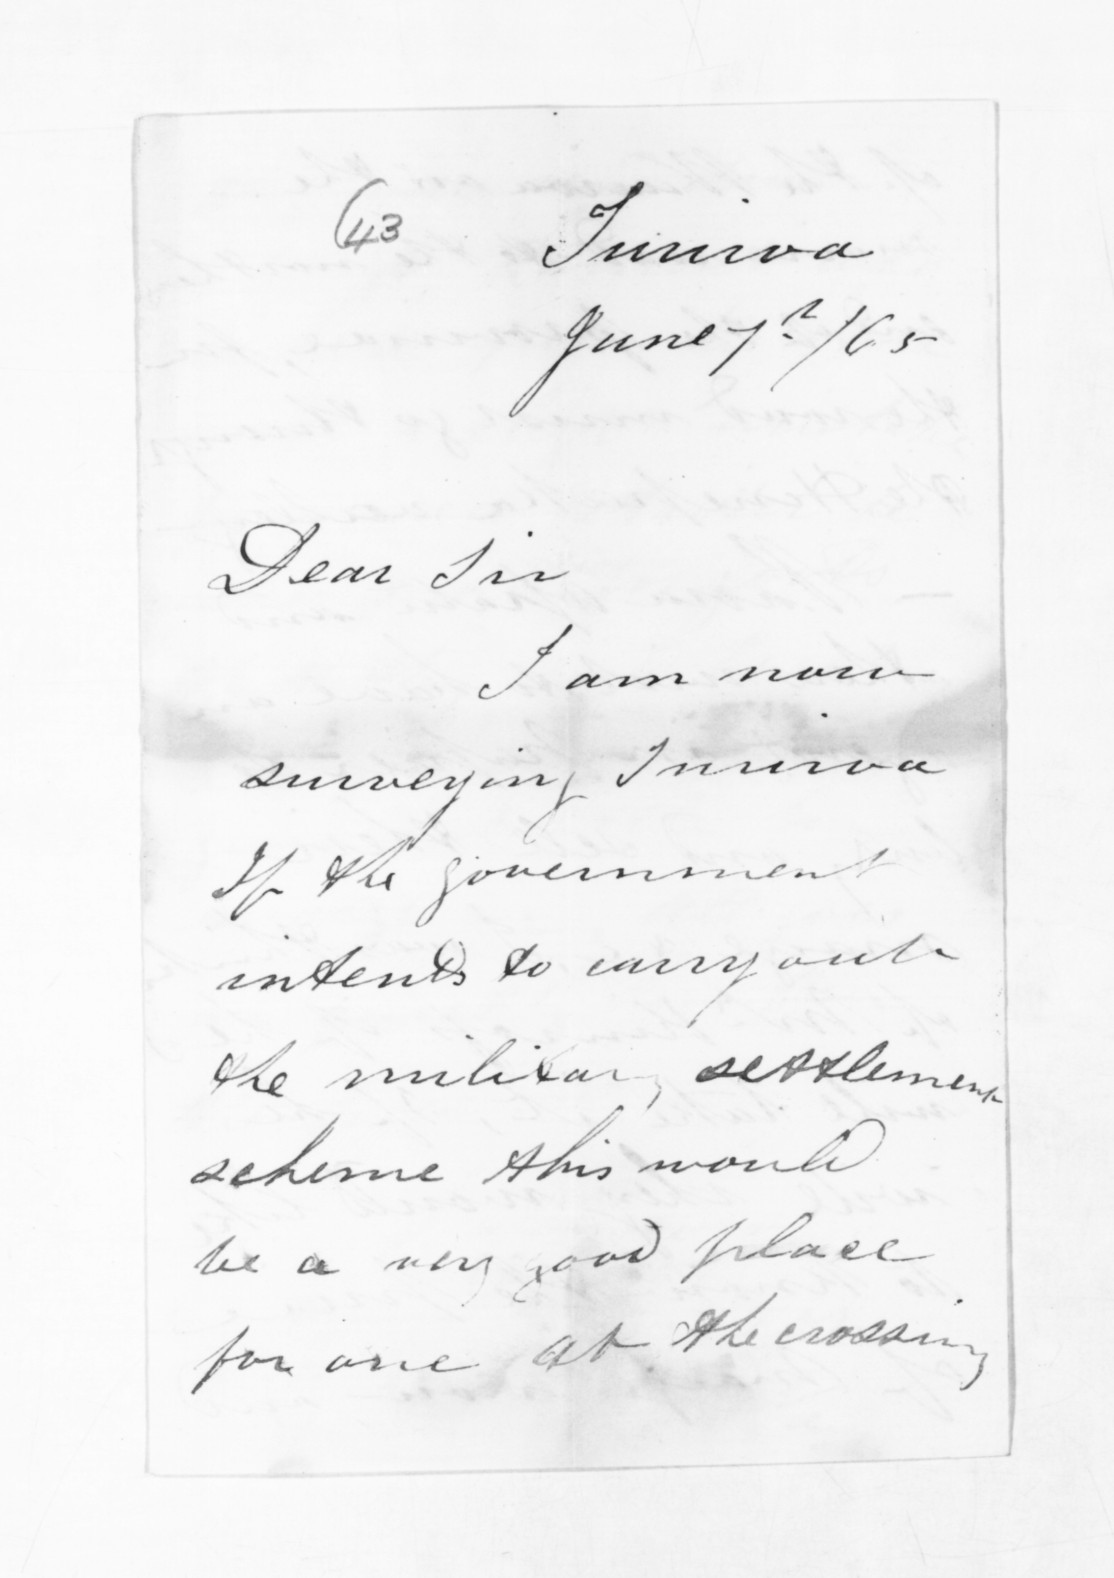 (43
Turiroa
June 7th /65
Dear Sir
I am now
surveying Turiroa
If the government
intends to carry out
the military settlement
scheme this would
be a very good place
for one at the crossing